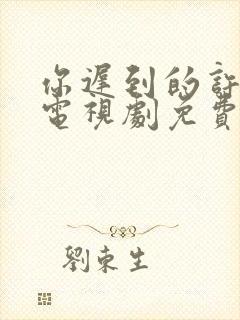 你遲到的許
電視劇免費
劉東生